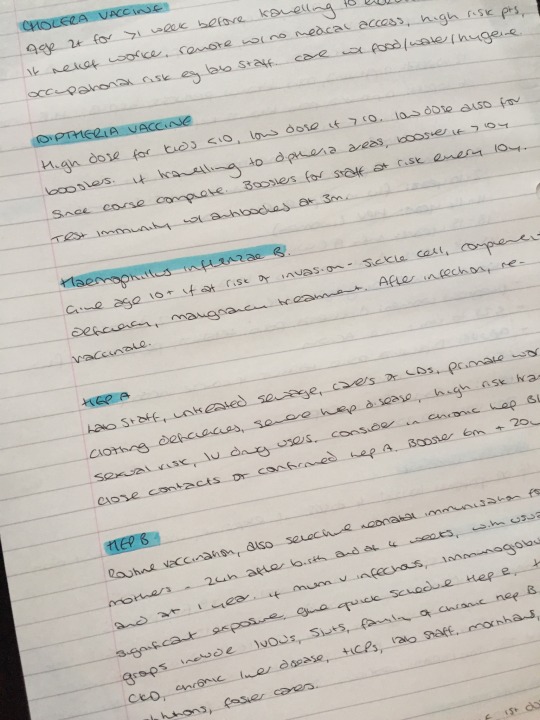 CHOLERA VACCINE
Age 2+ for >1 week before travelling to
if relief worker, remote w/ no medical access, high risk pts,
occupational risk eg lab staff. care w food/water/hygiene
DIPTHERIA VACCINE
High dose for kids <10, low dose if >10. low dose also for
boosters. If travelling to diptheria areas, booster if >10y
since corse complete. Boosters for staff at risk every 10y.
Test immunity w/ antibodies at 3m.
Haemophillus influenzae B.
Give age 10+ if at risk of invasion - sickle cell,
deficiency, malignancy treatment. After infection, re-
vaccinate.
HEP A
Lab staff, untreated sewage, carers of LDs, primate
clotting deficiencies, severe hep disease, high risk
sexual risk, IV drug users. consider in chronic hep B/
close contacts of confirmed hep A. Booster 6m + 20
HEP B
Routine vaccination, also selective neonatal immunisation
mothers - 24h after birth and at 4 weeks, with
and at 1 year. if mum v infectious,
significant exposure, give quick schedule Hep B,
groups include IVDUs, SWs, family of chronic hep B
CKD, chronic liver disease, HCPs, lab staff, morticians,
foster carers.